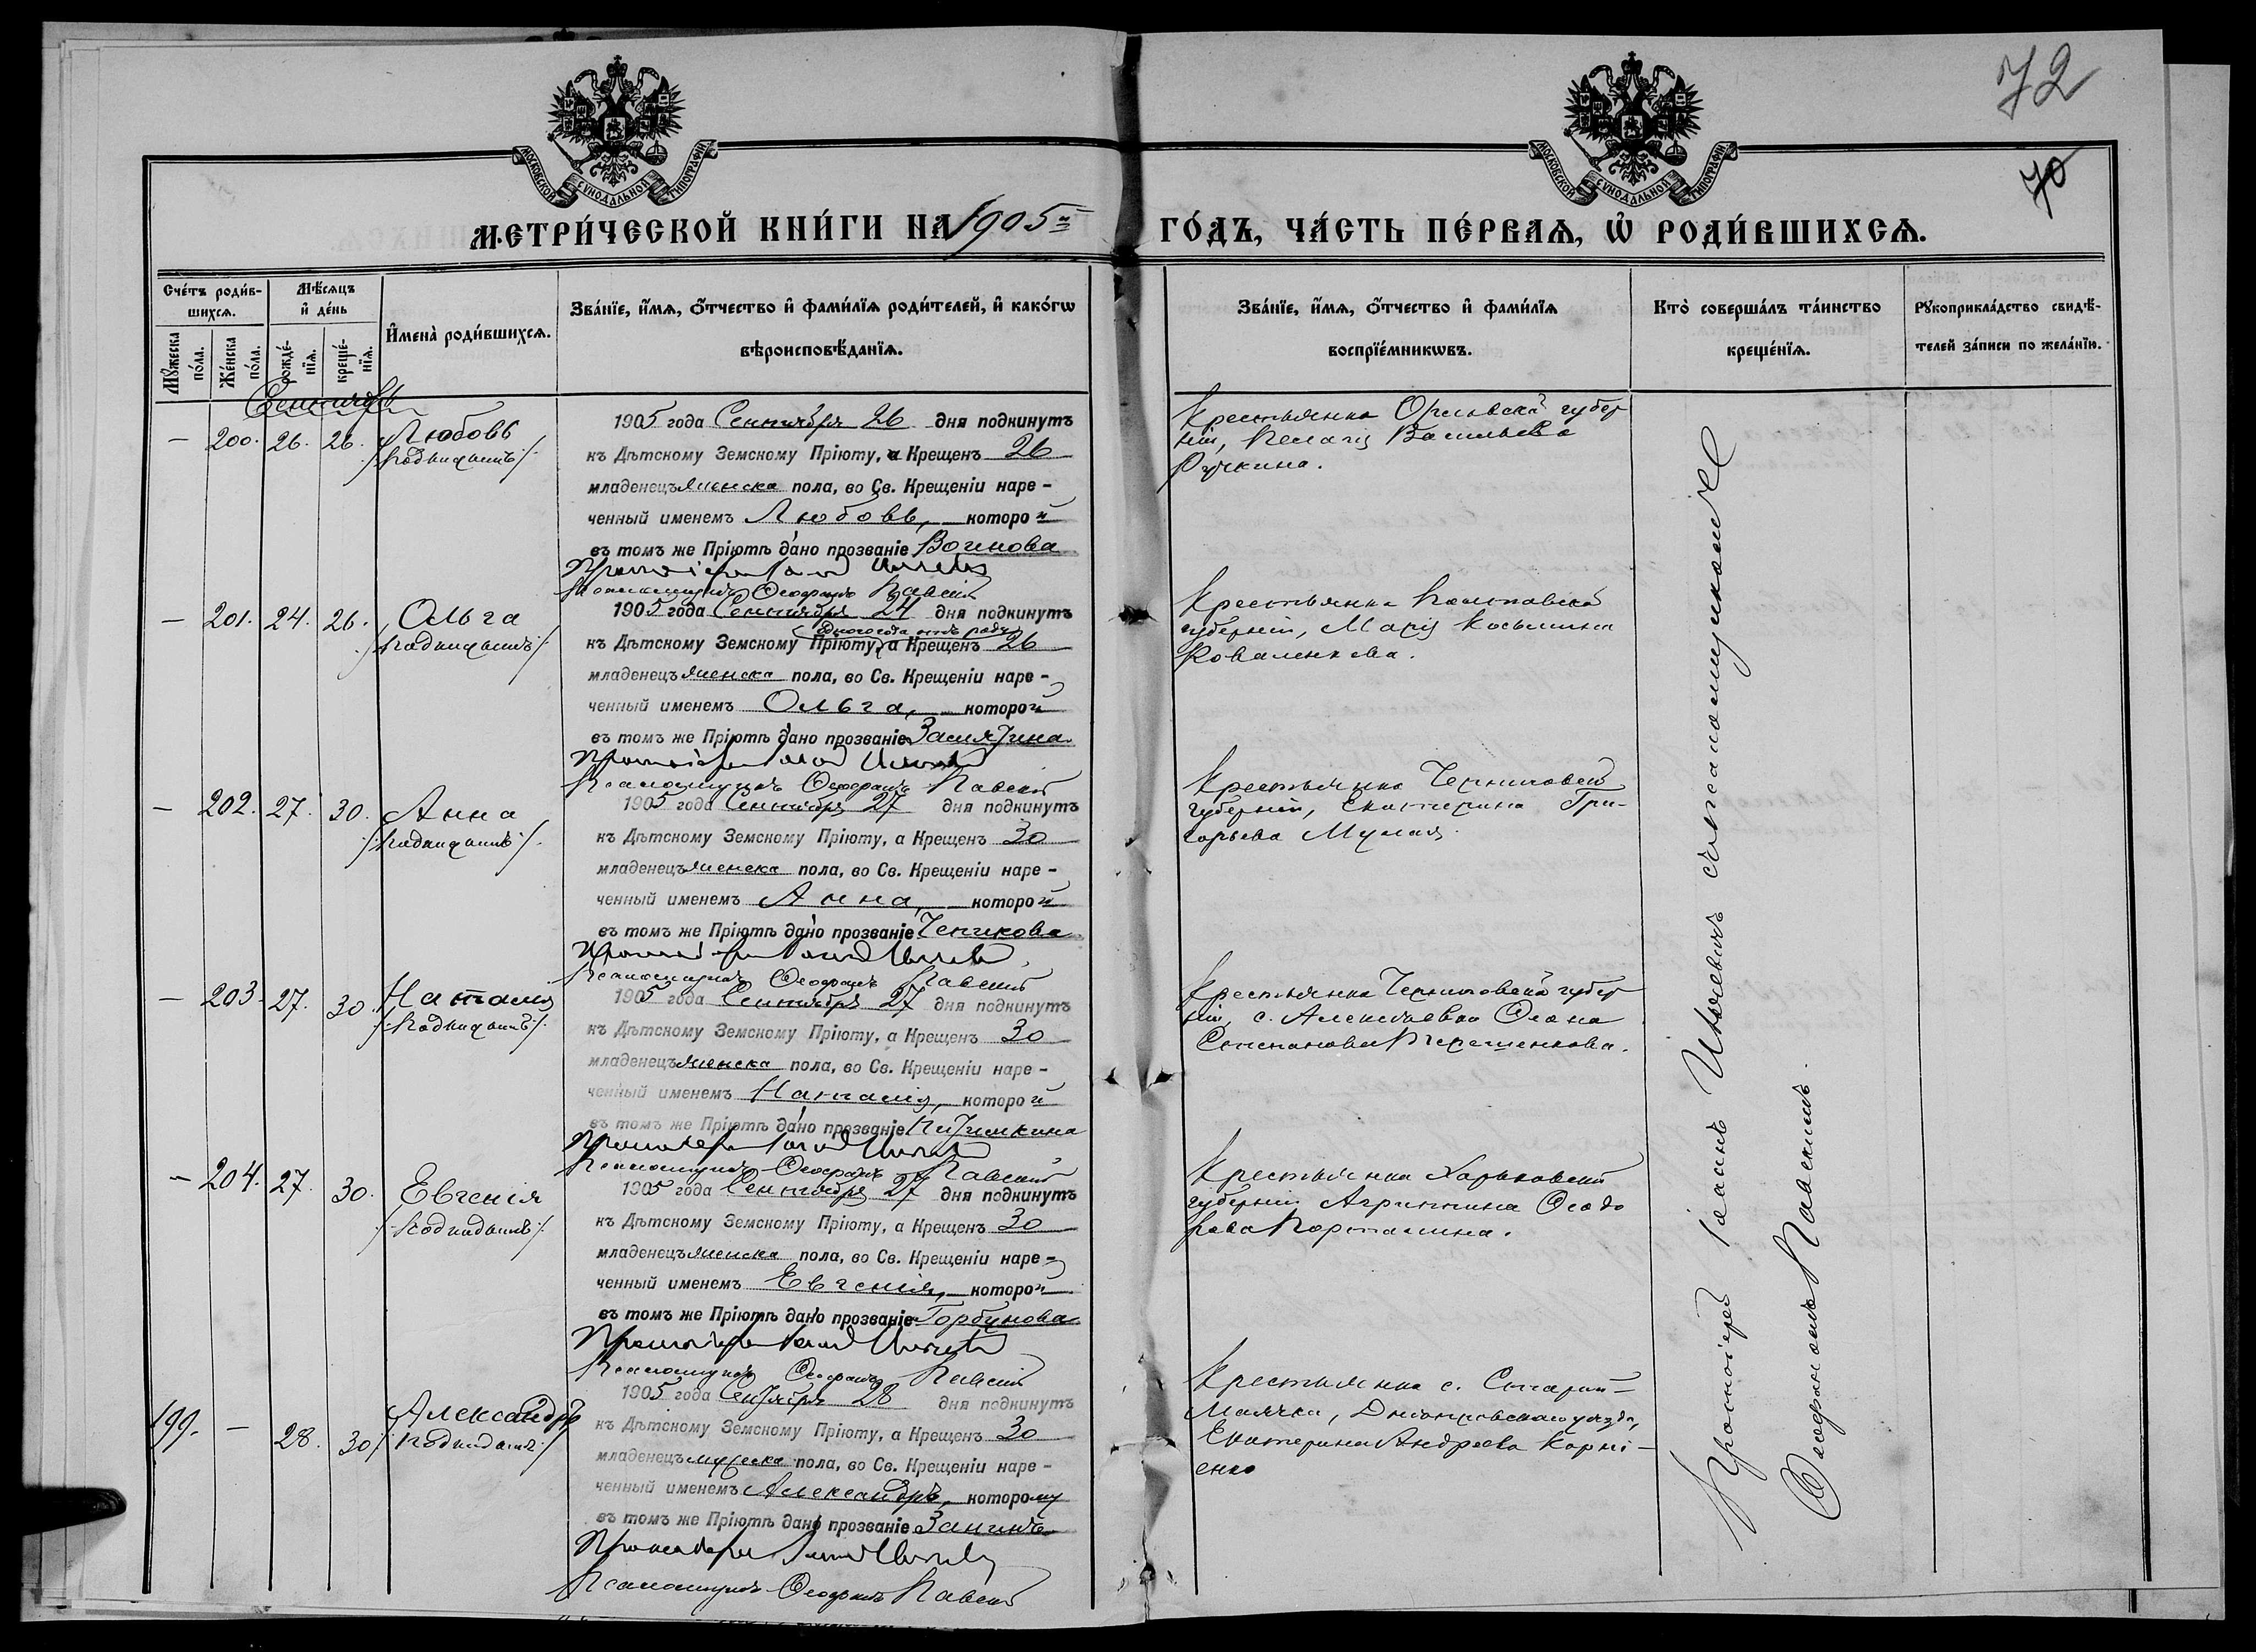 72
70
МОСКОВСКОЙ СѴНОДАЛЬНОЙ ТИПОГРАФІИ
МОСКОВСКОЙ СѴНОДАЛЬНОЙ ТИПОГРАФІИ
МЕТРИ́ЧЕСКОЙ КНИ́ГИ НА 1905й
ГО́ДЪ, ЧА́СТЬ ПЕ́РВАѦ, Ѡ҆ РОДИ́ВШИХСѦ.
Сче́тъ роди́в-
шихсѧ.
Мѣ́сѧцъ
и҆ де́нь
Мꙋ́жеска по́ла.
Же́нска по́ла.
рожде́-нїѧ.
креще́-нїѧ.
И҆мена̀ роди́вшихсѧ.
Зва́нїе, и҆́мѧ, ѻ҆́тчество и҆ фами́лїѧ роди́телей, и҆ како́гѡ
вѣроисповѣ́данїѧ.
Зва́нїе, и҆́мѧ, ѻ҆́тчество и҆ фами́лїѧ
воспрїе́мникѡвъ.
Кто̀ соверша́лъ та́инство
креще́нїѧ.
Рꙋкоприкла́дство свидѣ́-
телей за́писи по жела́нїю.
Сентябрь
— 200. 26. 26. Любовь
/подкидышъ/.
1905 года Сентября 26 дня подкинутъ
къ Дѣтскому Земскому Пріюту, а Крещенъ 26
младенецъ женска пола, во Св. Крещеніи наре-
ченный именемъ Любовь, которой
въ томъ же Пріютѣ дано прозваніе
Протоіерей Іоаннъ
Псаломщикъ Ѳеофанъ Павскій
Крестьянка Орловской губер
ніи, Пелагія Васильева
Ручкина.
— 201. 24. 26. Ольга
/подкидышъ/.
1905 года Сентября 24 дня подкинутъ
къ Дѣтскому Земскому Пріюту, а Крещенъ 26
младенецъ женска пола, во Св. Крещеніи наре-
ченный именемъ Ольга, которой
въ томъ же Пріютѣ дано прозваніе
Протоіерей Іоаннъ
Псаломщикъ Ѳеофанъ Павскій
Крестьянка Полтавской
губерніи, Марія Косьмина
Коваленкова.
— 202. 27. 30. Анна
/подкидышъ/.
1905 года Сентября 27 дня подкинутъ
къ Дѣтскому Земскому Пріюту, а Крещенъ 30
младенецъ женска пола, во Св. Крещеніи наре-
ченный именемъ Анна, которой
въ томъ же Пріютѣ дано прозваніе
Протоіерей Іоаннъ
Псаломщикъ Ѳеофанъ Павскій
Крестьянка Черниговской
губерніи, Екатерина Гри-
горьева
— 203. 27. 30. Наталія
/подкидышъ/.
1905 года Сентября 27 дня подкинутъ
къ Дѣтскому Земскому Пріюту, а Крещенъ 30
младенецъ женска пола, во Св. Крещеніи наре-
ченный именемъ Наталія, которой
въ томъ же Пріютѣ дано прозваніе
Протоіерей Іоаннъ
Псаломщикъ Ѳеофанъ Павскій
Крестьянка Черниговской губер
ніи, с. Алексѣевки
Степанова Терещенкова.
— 204. 27. 30. Евгенія
/подкидышъ/.
1905 года Сентября 27 дня подкинутъ
къ Дѣтскому Земскому Пріюту, а Крещенъ 30
младенецъ женска пола, во Св. Крещеніи наре-
ченный именемъ Евгенія, которой
въ томъ же Пріютѣ дано прозваніе Горбунова
Протоіерей Іоаннъ
Псаломщикъ Ѳеофанъ Павскій
Крестьянка Харьковской
губерніи Агрипина Ѳеодо
рова
199. — 28. 30. Александръ
/подкидышъ/
1905 года Сентября 28 дня подкинутъ
къ Дѣтскому Земскому Пріюту, а Крещенъ 30
младенецъ мужеска пола, во Св. Крещеніи наре-
ченный именемъ Александръ, которому
въ томъ же Пріютѣ дано прозваніе
Протоіерей Іоаннъ
Псаломщикъ Ѳеофанъ Павскій
Крестьянка с. Старой-
Маячки, Днѣпровскаго уѣзда,
Екатерина Андреева Корні-
енко
Протоіерей Іоаннъ съ псаломщикомъ
Ѳеофаномъ Павскимъ.